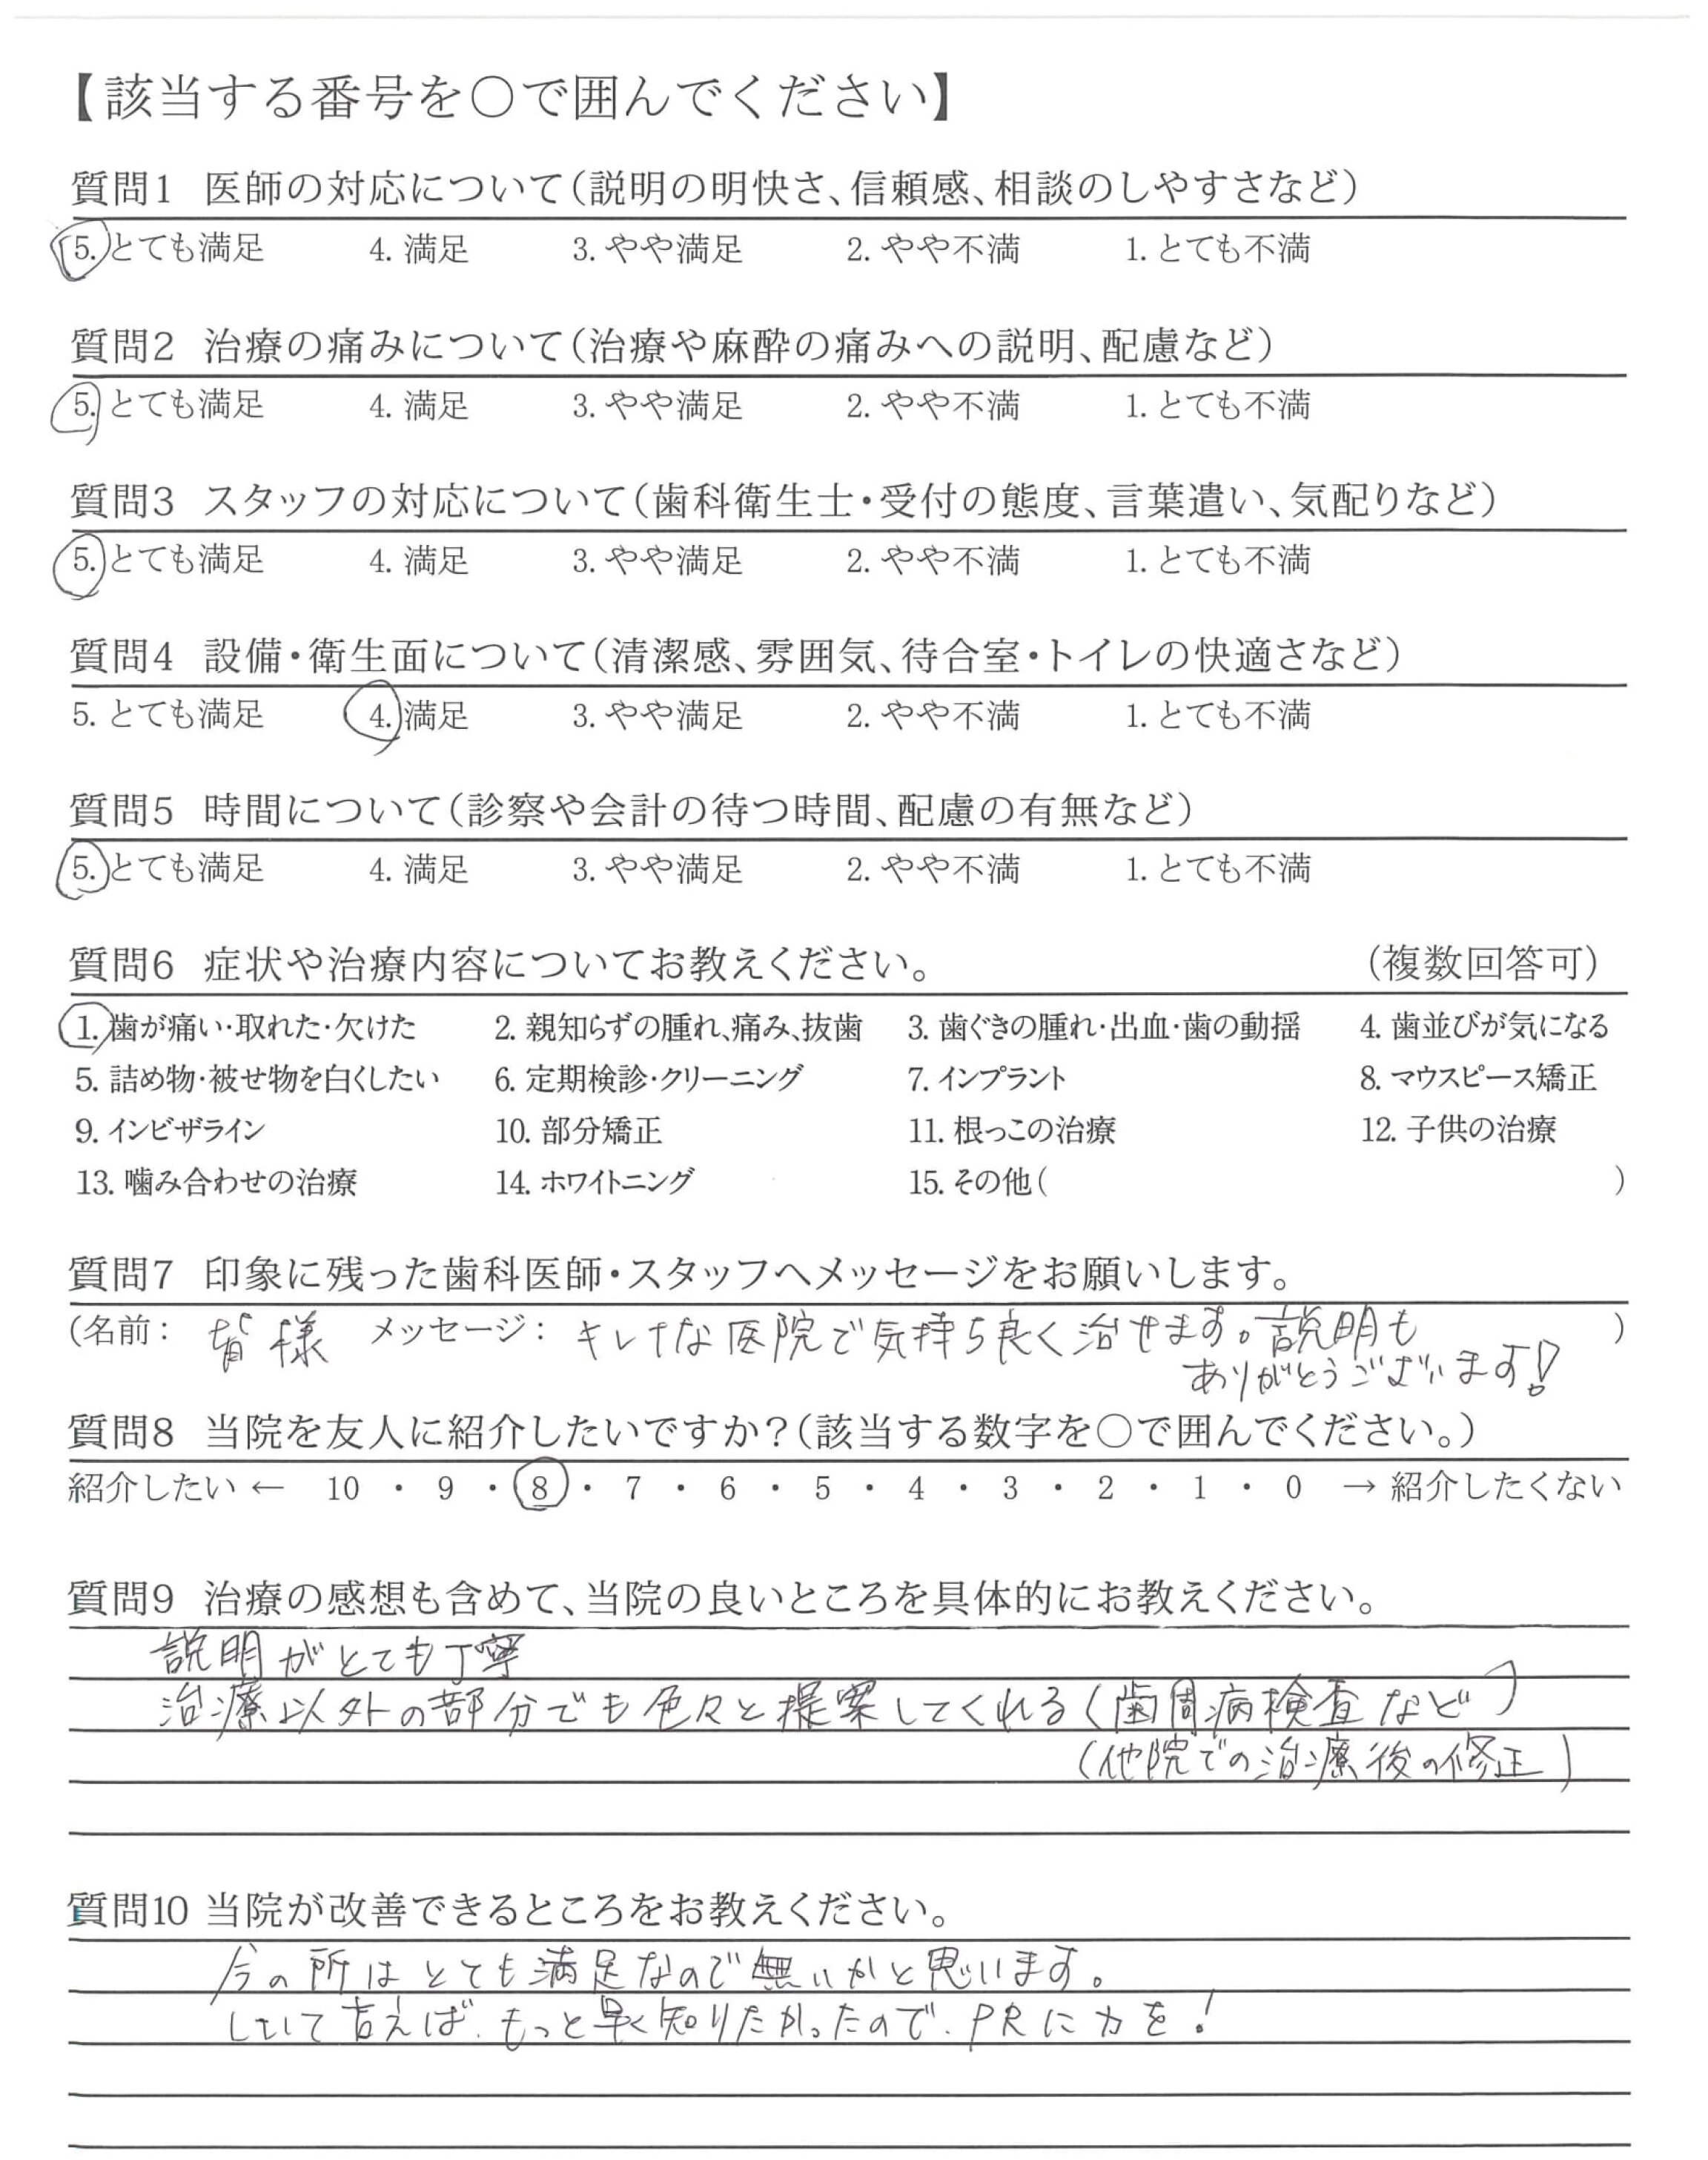 【該当する番号を○で囲んでください】
質問1 医師の対応について(説明の明快さ、信頼感、相談のしやすさなど)
5. とても満足 4. 満足 3. やや満足 2. やや不満 1. とても不満
質問2 治療の痛みについて(治療や麻酔の痛みへの説明、配慮など)
5. とても満足 4. 満足 3. やや満足 2. やや不満 1. とても不満
質問3 スタッフの対応について(歯科衛生士・受付の態度、言葉遣い、気配りなど)
5. とても満足 4. 満足 3. やや満足 2. やや不満 1. とても不満
質問4 設備・衛生面について(清潔感、雰囲気、待合室・トイレの快適さなど)
5. とても満足 4. 満足 3. やや満足 2. やや不満 1. とても不満
質問5 時間について(診察や会計の待つ時間、配慮の有無など)
5. とても満足 4. 満足 3. やや満足 2. やや不満 1. とても不満
質問6 症状や治療内容についてお教えください。 (複数回答可)
1. 歯が痛い・取れた・欠けた 2. 親知らずの腫れ、痛み、抜歯 3. 歯ぐきの腫れ・出血・歯の動揺 4. 歯並びが気になる
5. 詰め物・被せ物を白くしたい 6. 定期検診・クリーニング 7. インプラント 8. マウスピース矯正
9. インビザライン 10. 部分矯正 11. 根っこの治療 12. 子供の治療
13. 噛み合わせの治療 14. ホワイトニング 15. その他( )
質問7 印象に残った歯科医師・スタッフへメッセージをお願いします。
(名前: 皆様 メッセージ: キレイな医院で気持ち良く治せます。説明も )
ありがとうございます!
質問8 当院を友人に紹介したいですか?(該当する数字を○で囲んでください。)
紹介したい ← 10 ・ 9 ・ 8 ・ 7 ・ 6 ・ 5 ・ 4 ・ 3 ・ 2 ・ 1 ・ 0 → 紹介したくない
質問9 治療の感想も含めて、当院の良いところを具体的にお教えください。
説明がとても丁寧
治療以外の部分でも色々と提案してくれる(歯周病検査など)
(他院での治療後の修正)
質問10 当院が改善できるところをお教えください。
今の所はとても満足なので無いかと思います。
しいて言えば、もっと早く知りたかったので、PRに力を!